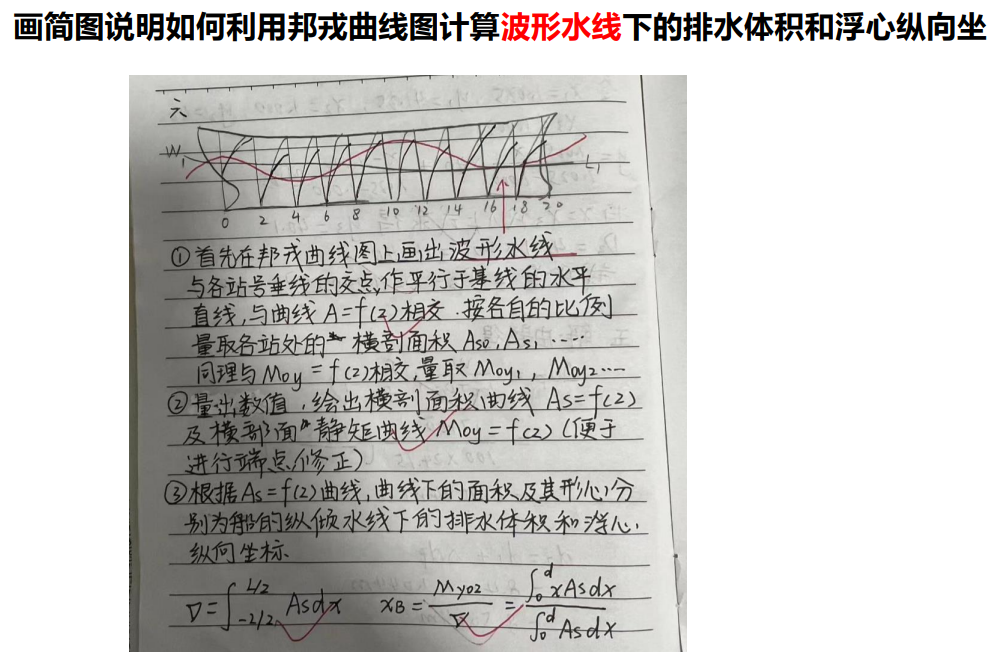 画简图说明如何利用邦戎曲线图计算波形水线下的排水体积和浮心纵向坐
六
W₁
L₁
0 2 4 6 8 10 12 14 16 18 20
①首先在邦戎曲线图上画出波形水线
与各站号垂线的交点,作平行于基线的水平
直线,与曲线A=f(z)相交.按各自的比例
量取各站处的横剖面积As₀,As₁,....
同理与Moy=f(z)相交,量取Moy₁,Moy₂...
②量出数值,绘出横剖面积曲线As=f(z)
及横部面静矩曲线Moy=f(z)(便于
进行端点修正)
③根据As=f(z)曲线,曲线下的面积及其形心分
别为船的纵倾水线下的排水体积和浮心
纵向坐标.
∇=∫_{-L/2}^{L/2} Asdx x_B=M_{yoz}/∇=∫₀^d xAsdx/∫₀^d Asdx